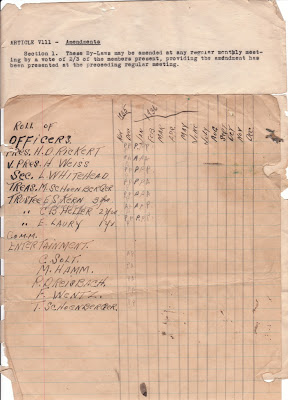 ARTICLE V111 - Amendments
Section 1. These By-Laws may be amended at any regular monthly meet-
ing by a vote of 2/3 of the members present, providing the amendment has
been presented at the preceeding regular meeting.
ROLL OF
OFFICERS
PRES. H.D. RICKERT
V. PRES. H WEISS
SEC. L WHITEHEAD
TREAS. M. SCHOENBERGER
TRUSTEES KERN 3yr.
" C B HELLER 2yr.
" E. LAURY 1yr.
COMM.
ENTERTAINMENT.
C. SOLT.
M. HAMM.
F. WENTZ.
T. SCHOENBERGER.
FEB
MAR
APR
MAY
JUNE
JULY
AUG
OCT
NOV
DEC